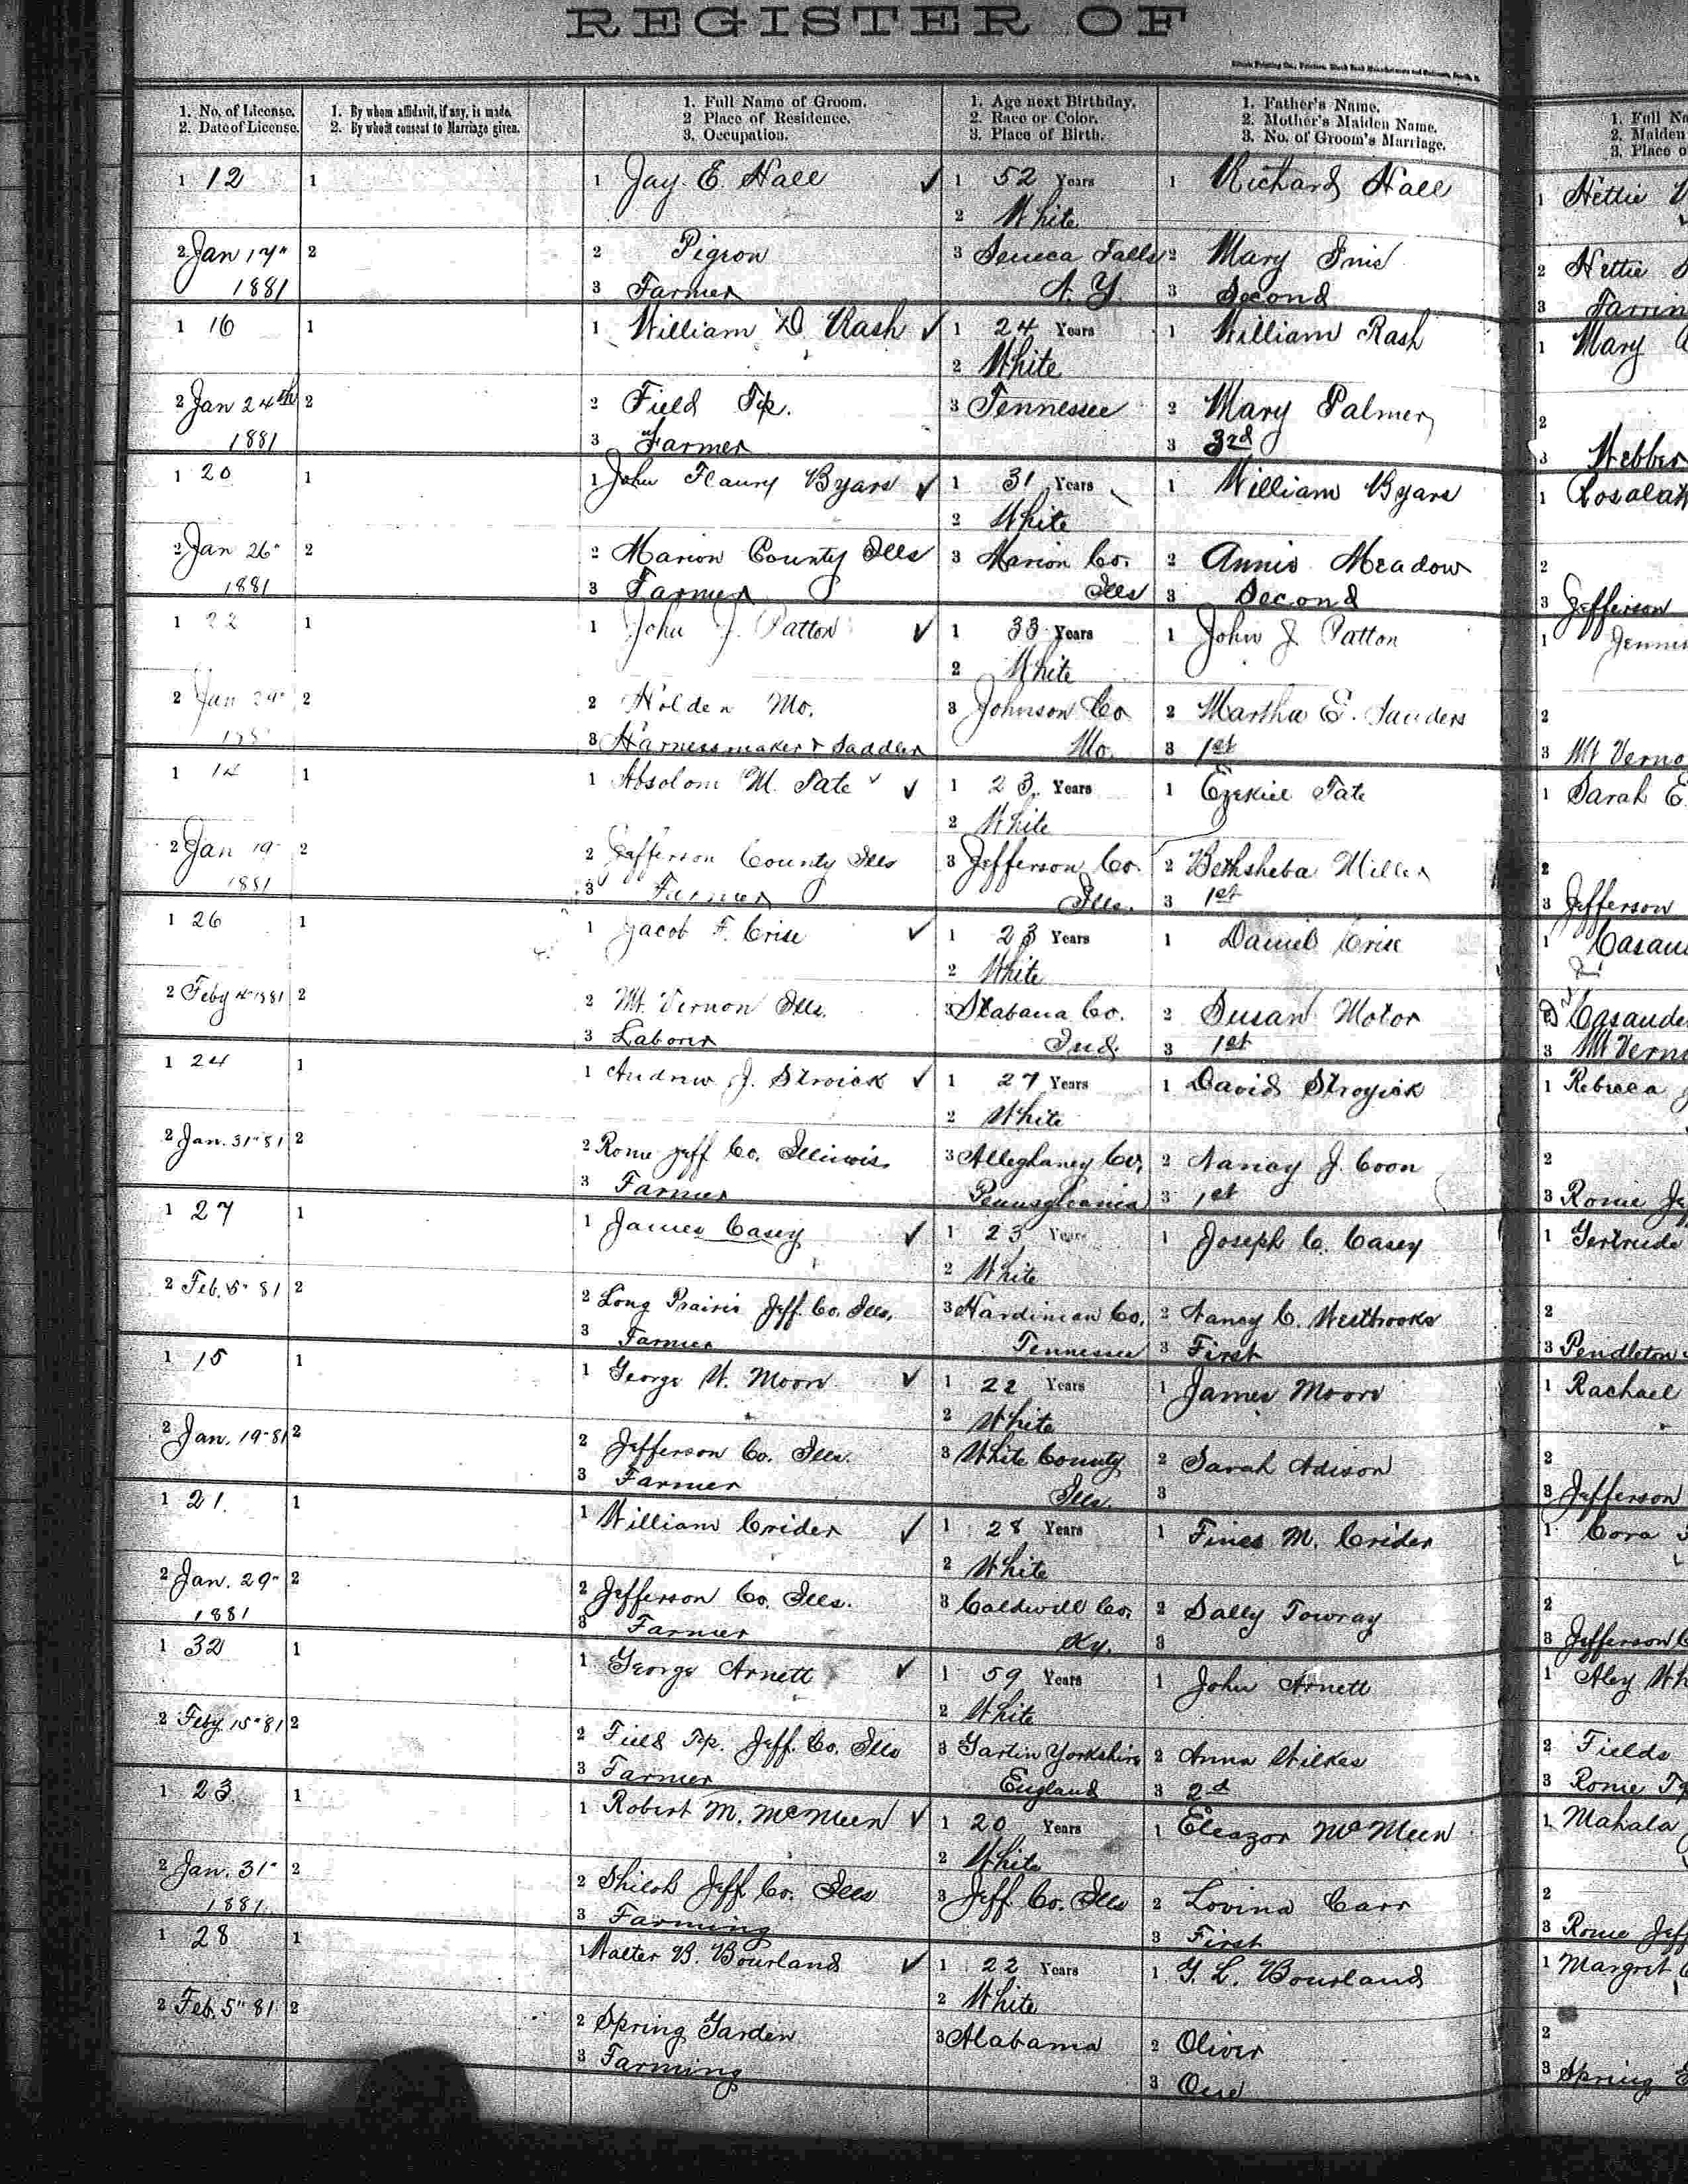 REGISTER OF
1. No. of License.
2. Date of License.
1. By whom affidavit, if any, is made.
2. By whom consent to Marriage given.
1. Full Name of Groom.
2 Place of Residence.
3. Occupation.
1. Age next Birthday.
2. Race or Color.
3. Place of Birth.
1. Father's Name.
2. Mother's Maiden Name.
3. No. of Groom's Marriage.
1. Full Na
2. Maiden
3. Place o
1 12 1 1 Jay E. Hall ✓ 1 52 Years 1 Richard Hall 1 Nettie
2 White
2 Jan 17" 2 2 Pigeon 3 Seneca Falls 2 Mary 2 Nettie
1881 3 Farmer N.Y. 3 Second 3 Farrin
1 16 1 1 William D. Rash ✓ 1 24 Years 1 William Rash 1 Mary
2 White
2 Jan 24th 2 2 Field Tp. 3 Tennessee 2 Mary Palmer 2
1881 3 Farmer 3 3rd 3 Webber
1 20 1 1 John Flaury Byars ✓ 1 31 Years 1 William Byars 1
2 White
2 Jan 26" 2 2 Marion County Ills 3 Marion Co. 2 Annie Meadow 2
1881 3 Farmer Ills 3 Second 3 Jefferson
1 22 1 1 John J. Patton ✓ 1 33 Years 1 John J Patton 1 Jennie
2 White
2 Jan 29" 2 2 Holden Mo. 3 Johnson Co 2 Martha E. Sanders 2
188 3 Harnessmaker & Saddler Mo. 3 1st 3 Mt Verno
1 14 1 1 Absolom M. Tate ✓ ✓ 1 23 Years 1 Ezekiel Tate 1 Sarah E
2 White
2 Jan 19" 2 2 Jefferson County Ills 3 Jefferson Co. 2 Bethsheba Miller 2
1881 3 Farmer Ills. 3 1st 3 Jefferson
1 26 1 1 Jacob F. Crise ✓ 1 23 Years 1 Daniel Crise 1 Casau
2 White
2 Feby 4" 1881 2 2 Mt. Vernon Ills. 3 Stabana Co. 2 Susan Motor 2 Casaude
3 Laborer Ind. 3 1st 3 Mt Verno
1 24 1 1 Andrew J. Stroick ✓ 1 27 Years 1 David Stroyick 1 Rebecca J
2 White
2 Jan. 31" 81 2 2 Rome Jeff Co. Illinois 3 Alleghaney Co. 2 Nancy J. Coon 2
3 Farmer Pennsylvania 3 1st 3 Rome Je
1 27 1 1 James Casey ✓ 1 23 Years 1 Joseph C. Casey 1 Gertrude
2 White
2 Feb. 5" 81 2 2 Long Prairie Jeff. Co. Ills. 3 Hardiman Co. 2 Nancy C. Westbrooks 2
3 Farmer Tennessee 3 First 3 Pendleton
1 15 1 1 George W. Moore ✓ 1 22 Years 1 James Moore 1 Rachael
2 White
2 Jan. 19" 81 2 2 Jefferson Co. Ills. 3 White County 2 Sarah Adison 2
3 Farmer Ills. 3 3 Jefferson
1 21. 1 1 William Crider ✓ 1 28 Years 1 Fines M. Crider 1 Cora
2 White
2 Jan. 29" 2 2 Jefferson Co. Ills. 3 Caldwell Co. 2 Sally Towray 2
1881 3 Farmer Ky. 3 3 Jefferson C
1 32 1 1 George Arnett ✓ 1 59 Years 1 John Arnett 1 Aley Wh
2 White
2 Feby. 15" 81 2 2 Field Tp. Jeff. Co. Ills 3 Garlin Yorkshire 2 Anna Wilkes 2 Fields
3 Farmer England 3 2d 3 Rome Tp
1 23 1 1 Robert M. McMeen ✓ 1 20 Years 1 Eleazor McMeen 1 Mahala
2 White
2 Jan. 31" 2 2 Shiloh Jeff Co. Ills 3 Jeff Co. Ills 2 Lovina Carr 2
1881 3 Farming 3 First 3 Rome Jeff
1 28 1 1 Walter B. Bourland ✓ 1 22 Years 1 G. L. Bourland 1 Margret
2 White
2 Feb. 5" 81 2 2 Spring Garden 3 Alabama 2 Oliver 2
3 Farming 3 One 3 Spring